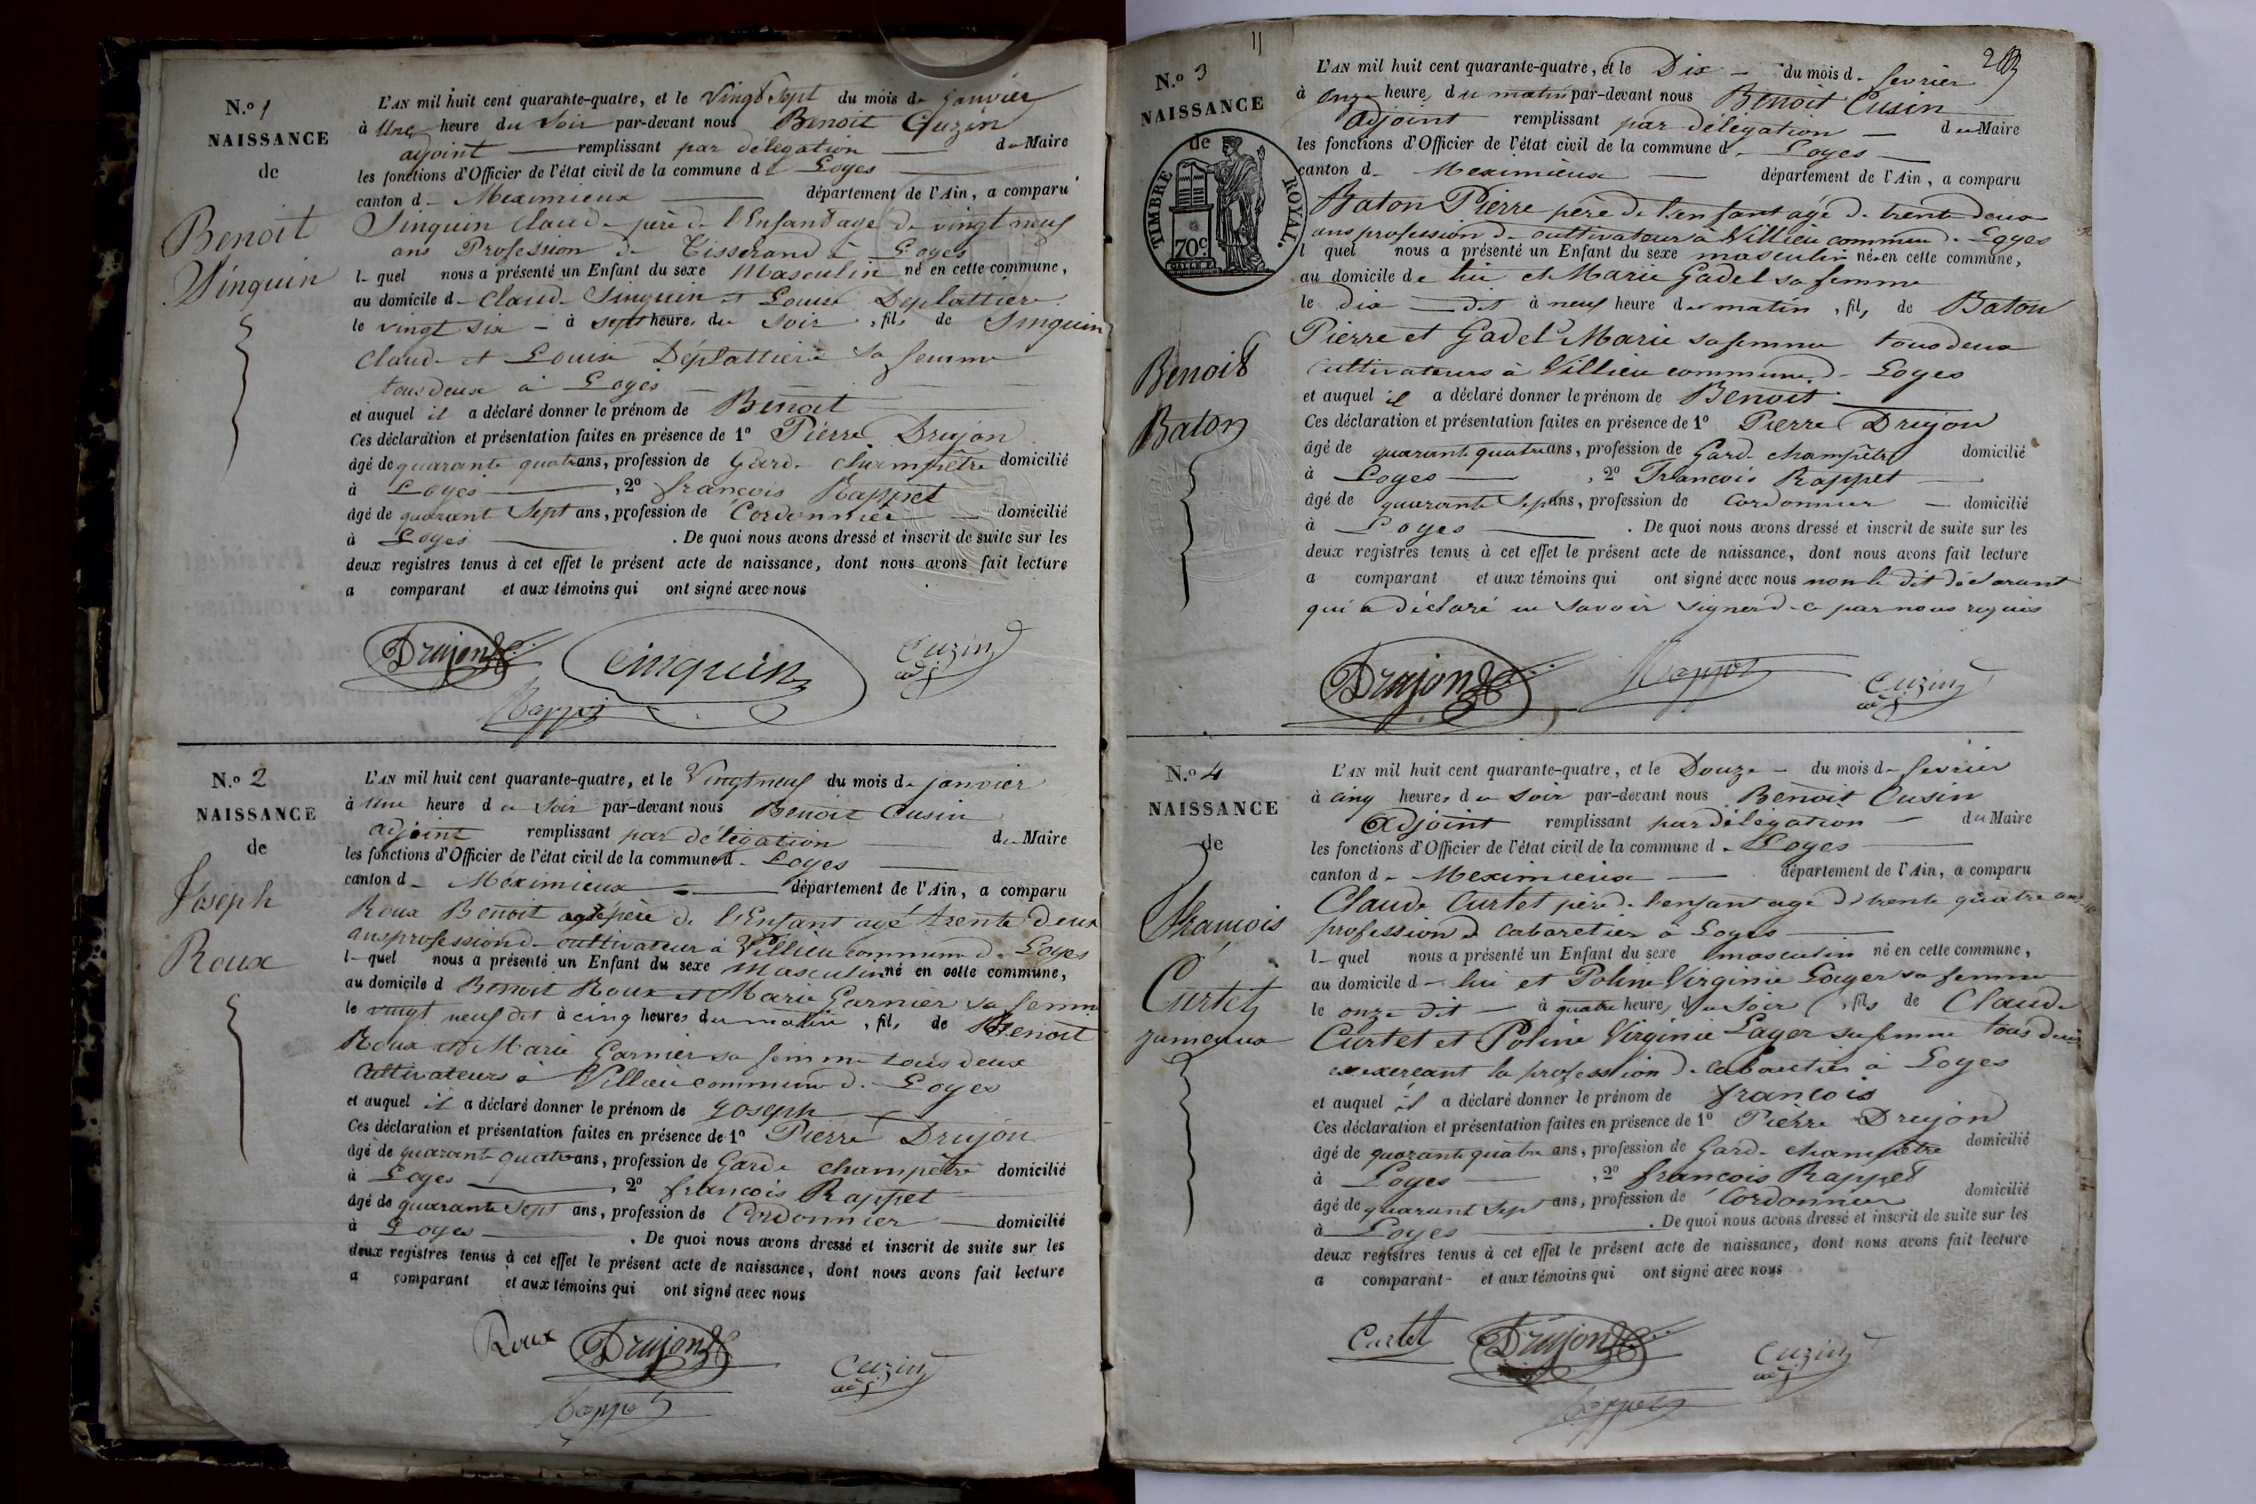 N.o 1
NAISSANCE
de
Benoit
Sinquin
L'AN mil huit cent quarante-quatre, et le Vingt Sept du mois de Janvier
à Une heure du Soir par-devant nous Benoit Cuzin
adjoint remplissant par délégation du Maire
les fonctions d'Officier de l'état civil de la commune de Loyes
canton d- Meximieux département de l'Ain, a comparu
Sinquin Claude père de l'Enfant agé de vingt neuf
ans Profession de Tisserand à Loyes
l- quel nous a présenté un Enfant du sexe Masculin né en cette commune,
au domicile d- Claude Sinquin et Louise Déplattière
le vingt six - à sept heures du Soir, fils de Sinquin
Claude et Louise Déplattière sa femme
tous deux à Loyes
et auquel il a déclaré donner le prénom de Benoit
Ces déclaration et présentation faites en présence de 1o Pierre Drujon
âgé de quarante quatre ans, profession de Garde champêtre domicilié
à Loyes, 2o françois Rappet
âgé de quarant Sept ans, profession de Cordonnier domicilié
à Loyes. De quoi nous avons dressé et inscrit de suite sur les
deux registres tenus à cet effet le présent acte de naissance, dont nous avons fait lecture
a comparant et aux témoins qui ont signé avec nous
Drujon Cinquin Cuzin
adj
Rappet
N.o 2
NAISSANCE
de
Joseph
Roux
L'AN mil huit cent quarante-quatre, et le Vingt neuf du mois de janvier
à Une heure du Soir par-devant nous Benoit Cusin
adjoint remplissant par délégation du Maire
les fonctions d'Officier de l'état civil de la commune d- Loyes
canton d- Meximieux département de l'Ain, a comparu
Roux Benoit père de l'Enfant agé trente deux
ans profession d- cultivateur à Villieu commune d- Loyes
l- quel nous a présenté un Enfant du sexe Masculin né en cette commune,
au domicile d Benoit Roux et Marie Garnier sa femme
le vingt neuf dit à cinq heures du matin, fils de Benoit
Roux et Marie Garnier sa femme tous deux
Cultivateurs à Villieu commune d- Loyes
et auquel il a déclaré donner le prénom de Joseph
Ces déclaration et présentation faites en présence de 1o Pierre Drujon
âgé de quarante quatre ans, profession de Garde champêtre domicilié
à Loyes, 2o françois Rappet
âgé de quarante Sept ans, profession de Cordonnier domicilié
à Loyes. De quoi nous avons dressé et inscrit de suite sur les
deux registres tenus à cet effet le présent acte de naissance, dont nous avons fait lecture
a comparant et aux témoins qui ont signé avec nous
Roux Drujon Cuzin
adj
Rappet
N.o 3
NAISSANCE
de
TIMBRE ROYAL.
70c
Benoit
Baton
L'AN mil huit cent quarante-quatre, et le Dix - du mois d- fevrier
à Onze heures du matin par-devant nous Benoit Cusin
adjoint remplissant par délégation du Maire
les fonctions d'Officier de l'état civil de la commune d- Loyes
canton d- Meximieux département de l'Ain, a comparu
Baton Pierre père de l'enfant agé d- trente deux
ans profession d- cultivateur à Villieu commune d- Loyes
l quel nous a présenté un Enfant du sexe masculin né en cette commune,
au domicile de lui et Marie Gadel sa femme
le dix dit à neuf heure du matin, fils de Baton
Pierre et Gadel Marie sa femme tous deux
Cultivateurs à Villieu commune d- Loyes
et auquel il a déclaré donner le prénom de Benoit
Ces déclaration et présentation faites en présence de 1o Pierre Drujon
âgé de quarante quatre ans, profession de Garde champêtre domicilié
à Loyes, 2o François Rappet
âgé de quarante Sept ans, profession de Cordonnier domicilié
à Loyes. De quoi nous avons dressé et inscrit de suite sur les
deux registres tenus à cet effet le présent acte de naissance, dont nous avons fait lecture
a comparant et aux témoins qui ont signé avec nous non le dit déclarant
qui a déclaré ne savoir signer d- ce par nous requis
Drujon Rappet Cuzin
adj
N.o 4
NAISSANCE
de
françois
Curtet
jumeaux
L'AN mil huit cent quarante-quatre, et le Douze - du mois d- fevrier
à cinq heures du Soir par-devant nous Benoit Cusin
Adjoint remplissant par délégation du Maire
les fonctions d'Officier de l'état civil de la commune d- Loyes
canton d- Meximieux département de l'Ain, a comparu
Claude Curtet père d- l'enfant agé d- trente quatre ans
profession d- cabaretier à Loyes
l- quel nous a présenté un Enfant du sexe masculin né en cette commune,
au domicile d- lui et Poline Virginie Layer sa femme
le onze dit à quatre heures du Soir, fils de Claude
Curtet et Poline Virginie Layer sa femme tous deux
exerçant la profession d- cabaretier à Loyes
et auquel il a déclaré donner le prénom de françois
Ces déclaration et présentation faites en présence de 1o Pierre Drujon
âgé de quarante quatre ans, profession de Garde champêtre domicilié
à Loyes, 2o françois Rappet
âgé de quarante Sept ans, profession de Cordonnier domicilié
à Loyes. De quoi nous avons dressé et inscrit de suite sur les
deux registres tenus à cet effet le présent acte de naissance, dont nous avons fait lecture
a comparant- et aux témoins qui ont signé avec nous
Curtet Drujon Cuzin
adj
Rappet